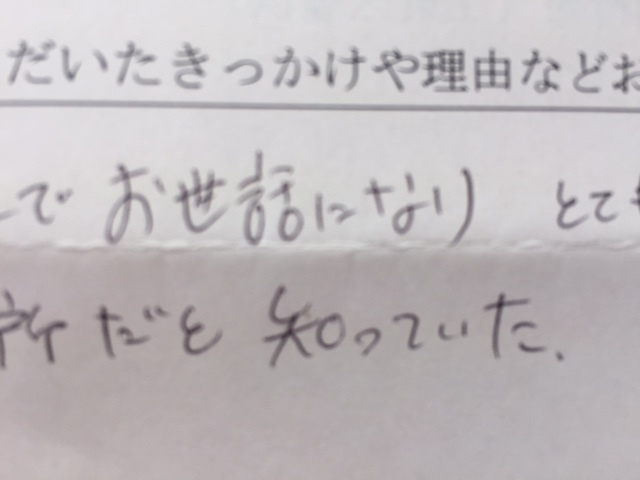 だいたきっかけや理由などお
でお世話になり とても
所だと知っていた.